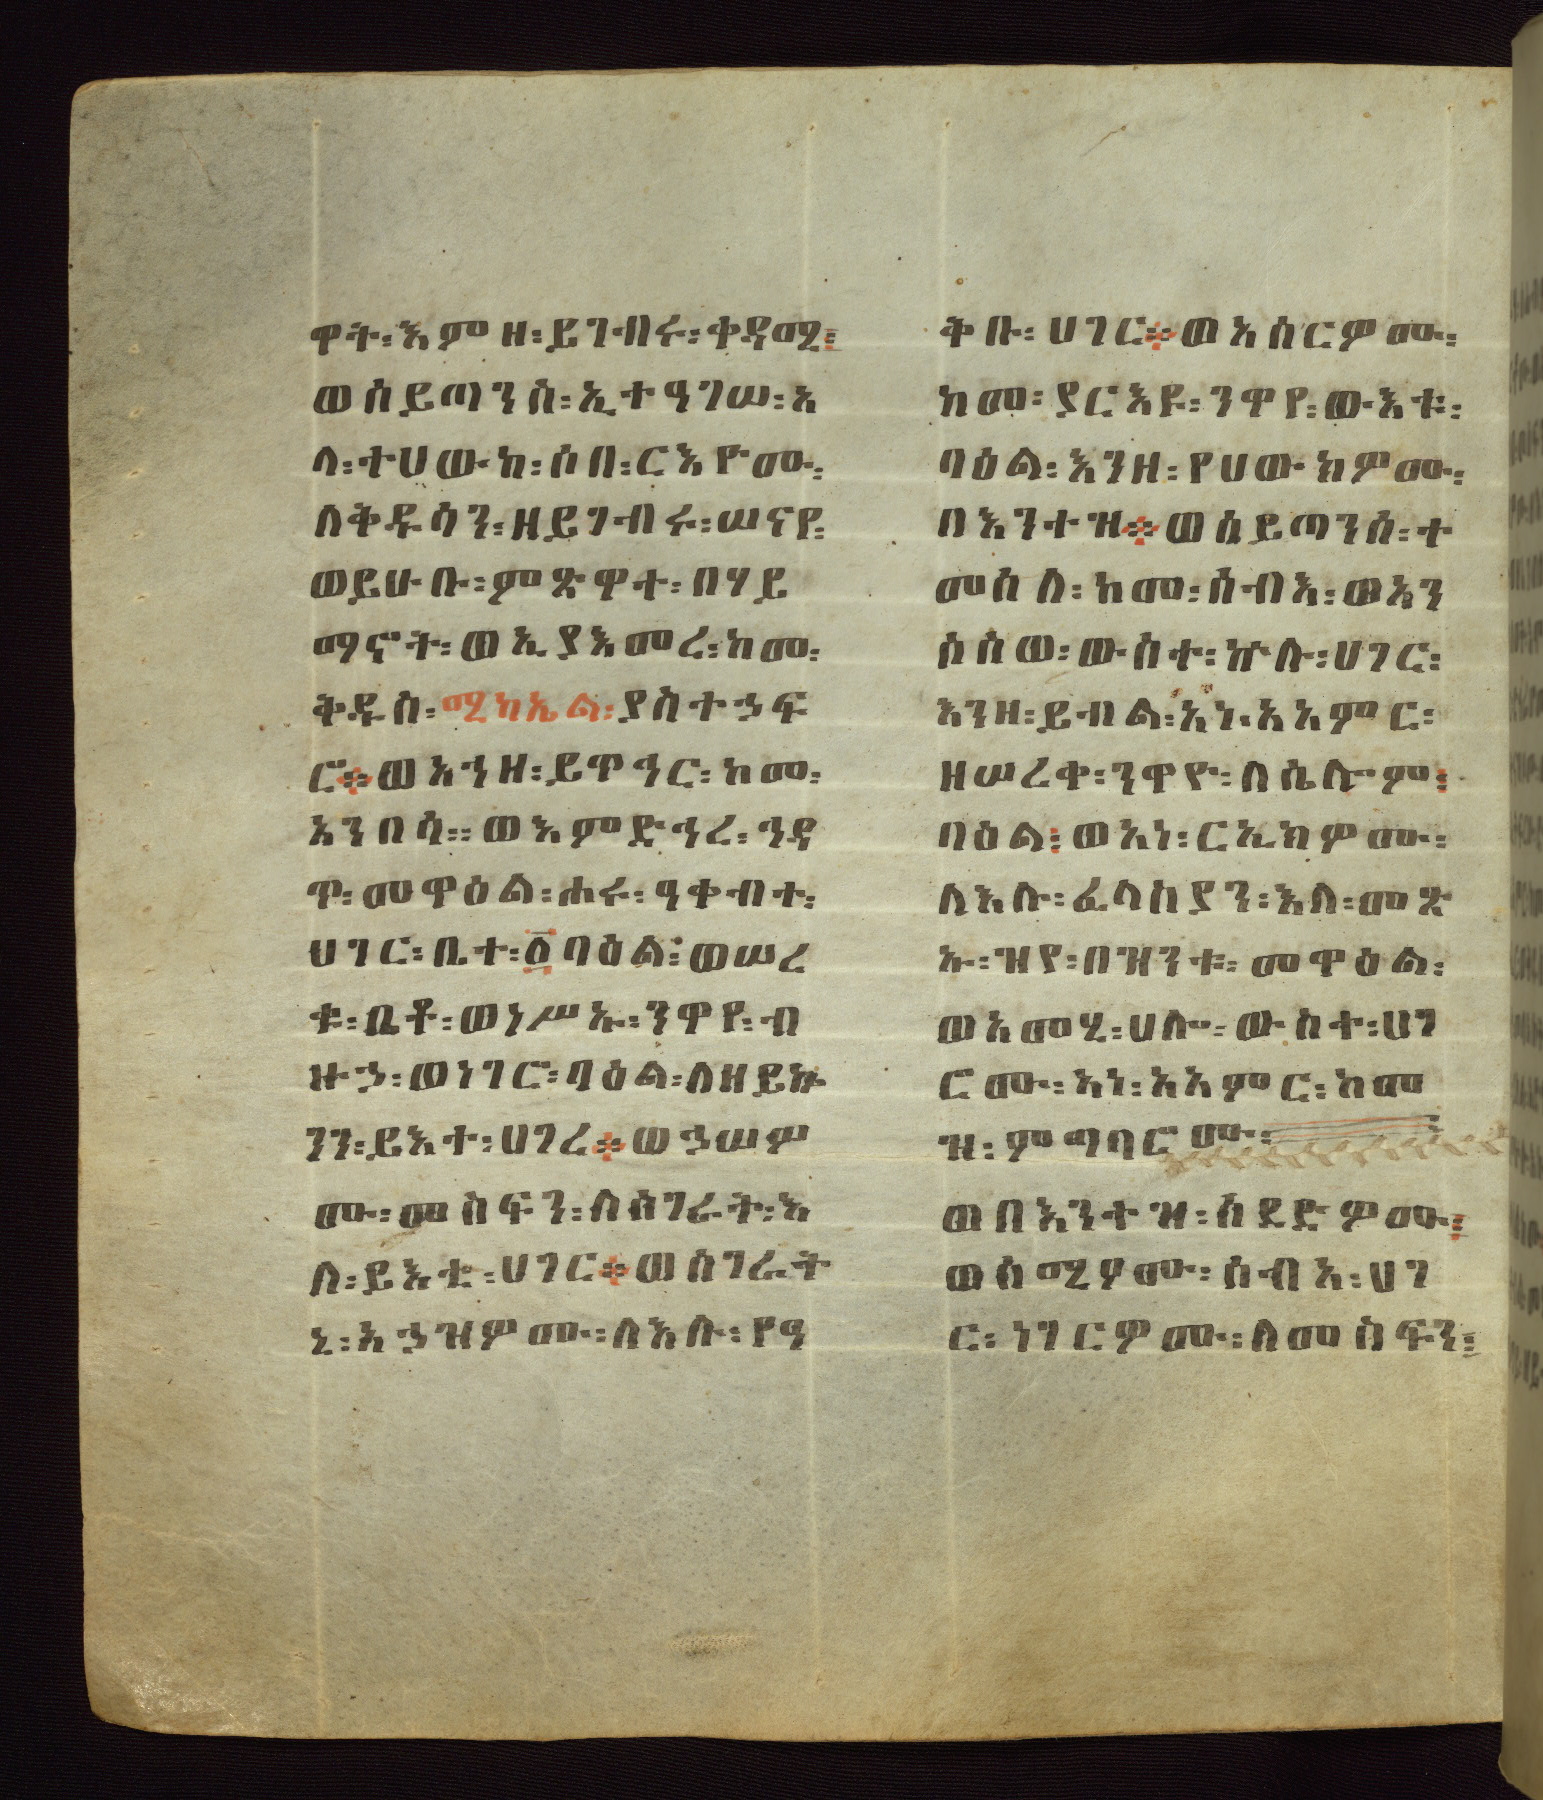 ዋት፡እምዘ፡ይገብሩ፡ቀዳሚ፡
ወሰይጣንሰ፡ኢተዓገሠ፡አ
ላ፡ተሀውከ፡ሶበ፡ርእዮሙ፡
ለቅዱሳን፡ዘይገብሩ፡ሠናየ፡
ወይሁቡ፡ምጽዋተ፡በሃይ
ማኖት፡ወኢያእመረ፡ከመ፡
ቅዱስ፡ሚካኤል፡ያስተኃፍ
ሮ፨ወእንዘ፡ይዋኅር፡ከመ፡
አንበሳ፡፡ወእምድኅረ፡ኅዳ
ጥ፡መዋዕል፡ሐሩ፡ዓቀብተ፡
ሀገር፡ቤተ፡፩ባዕል፡ወሠረ
ቁ፡ቤቶ፡ወነሥኡ፡ንዋየ፡ብ
ዙኃ፡ወነገሮ፡ባዕል፡ለዘይኴ
ንን፡ይእተ፡ሀገረ፨ወኃሠሦ
ሙ፡መስፍን፡ለሰገራት፡እ
ለ፡ይእቲ፡ሀገር፨ወሰገራት
ኒ፡አኃዝዎሙ፡ለእሉ፡የዓ
ቅቡ፡ሀገር፨ወአሰርዎሙ፡
ከመ፡ያርእዩ፡ንዋየ፡ውእቱ፡
ባዕል፡እንዘ፡የሀውክዎሙ፡
በእንተዝ፨ወሰይጣንሰ፡ተ
መሰለ፡ከመ፡ሰብእ፡ወአን
ሶሰወ፡ውስተ፡ኵሉ፡ሀገር፡
እንዘ፡ይብል፡አነ፡አአምር፡
ዘሠረቀ፡ንዋዮ፡ለሴሎም፡
ባዕል፡ወአነ፡ርኢክዎሙ፡
ለእሉ፡ፈላስያን፡እለ፡መጽ
ኡ፡ዝየ፡በዝንቱ፡መዋዕል፡
ወአመሂ፡ሀሎ፡ውስተ፡ሀገ
ሮሙ፡አነ፡አአምር፡ከመ
ዝ፡ምግባሮሙ፡
ወበእንተዝ፡ሰደድዎሙ፡
ወሰሚዖሙ፡ሰብአ፡ሀገ
ር፡ነገርዎሙ፡ለመስፍን፡